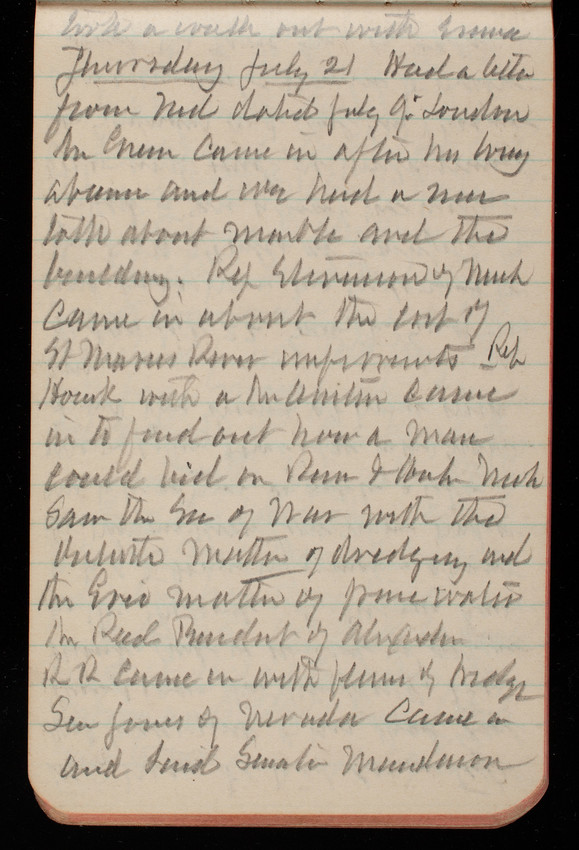 Took a walk out with Emma
Thursday July 21 Had a letter
from Ned dated July 9. London
Mr Green came in after his long
absence and we had a nice
talk about marble and the
building. Rep Stevenson of Mich
came in about the cost of
St Marys River improvements Rep
Houk with a Mr came
in to find out how a man
could bid on River & Harbor Mich
Saw the Sec of War with the
Duluth matter of dredging and
the Erie matter of pure water
Mr Reed President of Alexander
R R came in with plans of bridge
Sen Jones of Nevada came in
and said Senator Manderson